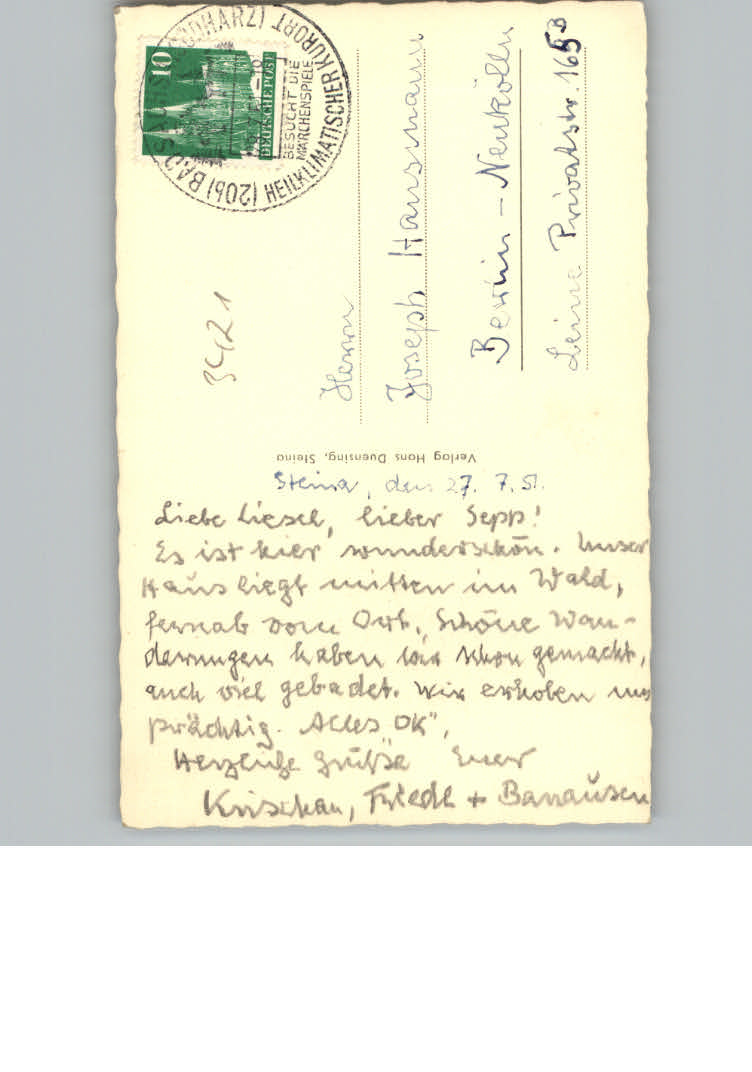 10
DEUTSCHE POST
(20b) BAD SACHSA (SÜDHARZ)
HEILKLIMATISCHER KURORT
BESUCHT DIE
MÄRCHENSPIELE
3421
Herrn
Joseph Hausmann
Berlin - Neukölln
Leine Privatstr. 165B
Verlag Hans Duensing, Steina
Steina, den 27. 7. 51.
Liebe Liesel, lieber Sepp!
Es ist hier wunderschön. Unser
Haus liegt mitten im Wald,
fernab vom Ort. Schöne Wan-
derungen haben wir schon gemacht,
auch viel gebadet. Wir erholen uns
prächtig. Alles „OK",
Herzliche Grüße Euer
Krischan, Friedl + Banausen